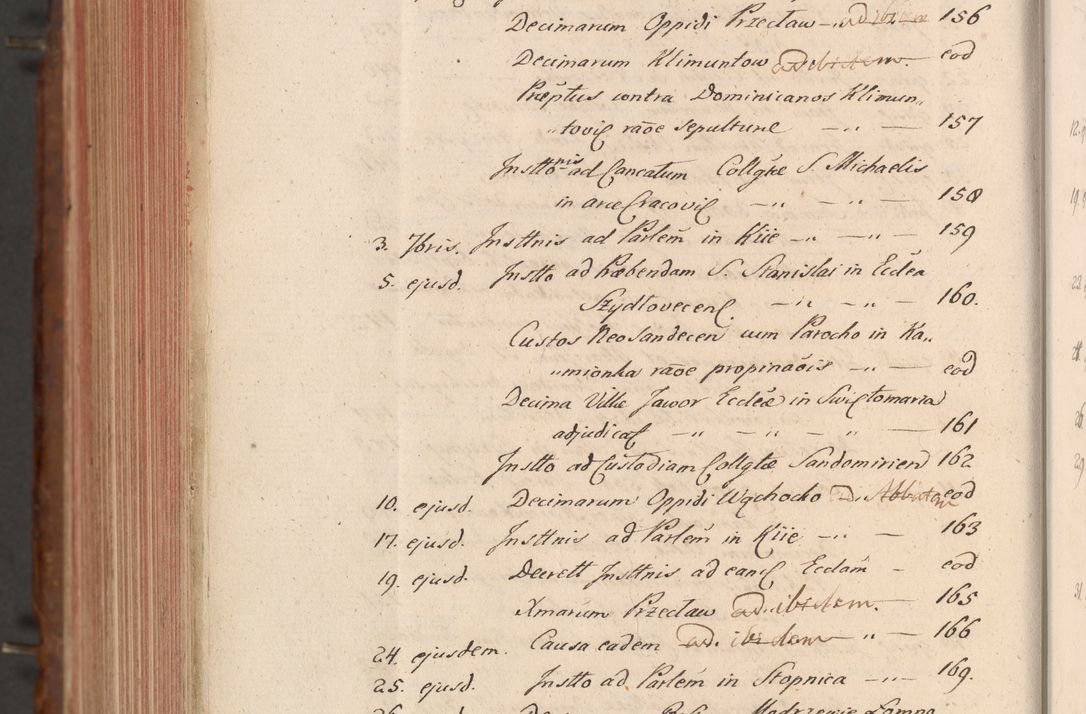 Decimarum Oppidi Przecław —„ ad ibidem 156
Decimarum Klimuntow ad ibidem. eod
Præptus contra Dominicanos Klimun„
„toviẽ rãoe sepulturæ —„— 157
Insttõnis ad Cancatum Collgtæ S. Michaelis
in arce Cracoviẽ —„ —„— 158
3. 7bris. Insttnis ad Parlem in Kiie —„ —„— 159
5. ejusd. Instto ad Præbendam S. Stanislai in Ecclea
Szydlovecens. —„ —„— 160.
Custos Neosandecen cum Parocho in Ka„
„mionka rãoe propinaõis —„— eod
Decima Villæ Jawor Eccleæ in Swiętomarza
adjudicat —„ —„ —„— 161
Instto ad Custodiam Collgtæ Sandomirien 162
10. ejusd. Decimarum Oppidi Wąchocko ad. Abbatem eod
17. ejusd. Insttnis ad Parlem in Kiie —„ — 163
19. ejusd. Decrett Insttnis ad eand Ecclam — eod
Xmarum Przecław ad. ibidem. — 165
24. ejusdem. Causa eadem ad. ibidem —„— 166
25. ejusd. Instto ad Parlem in Stopnica —„— 169.